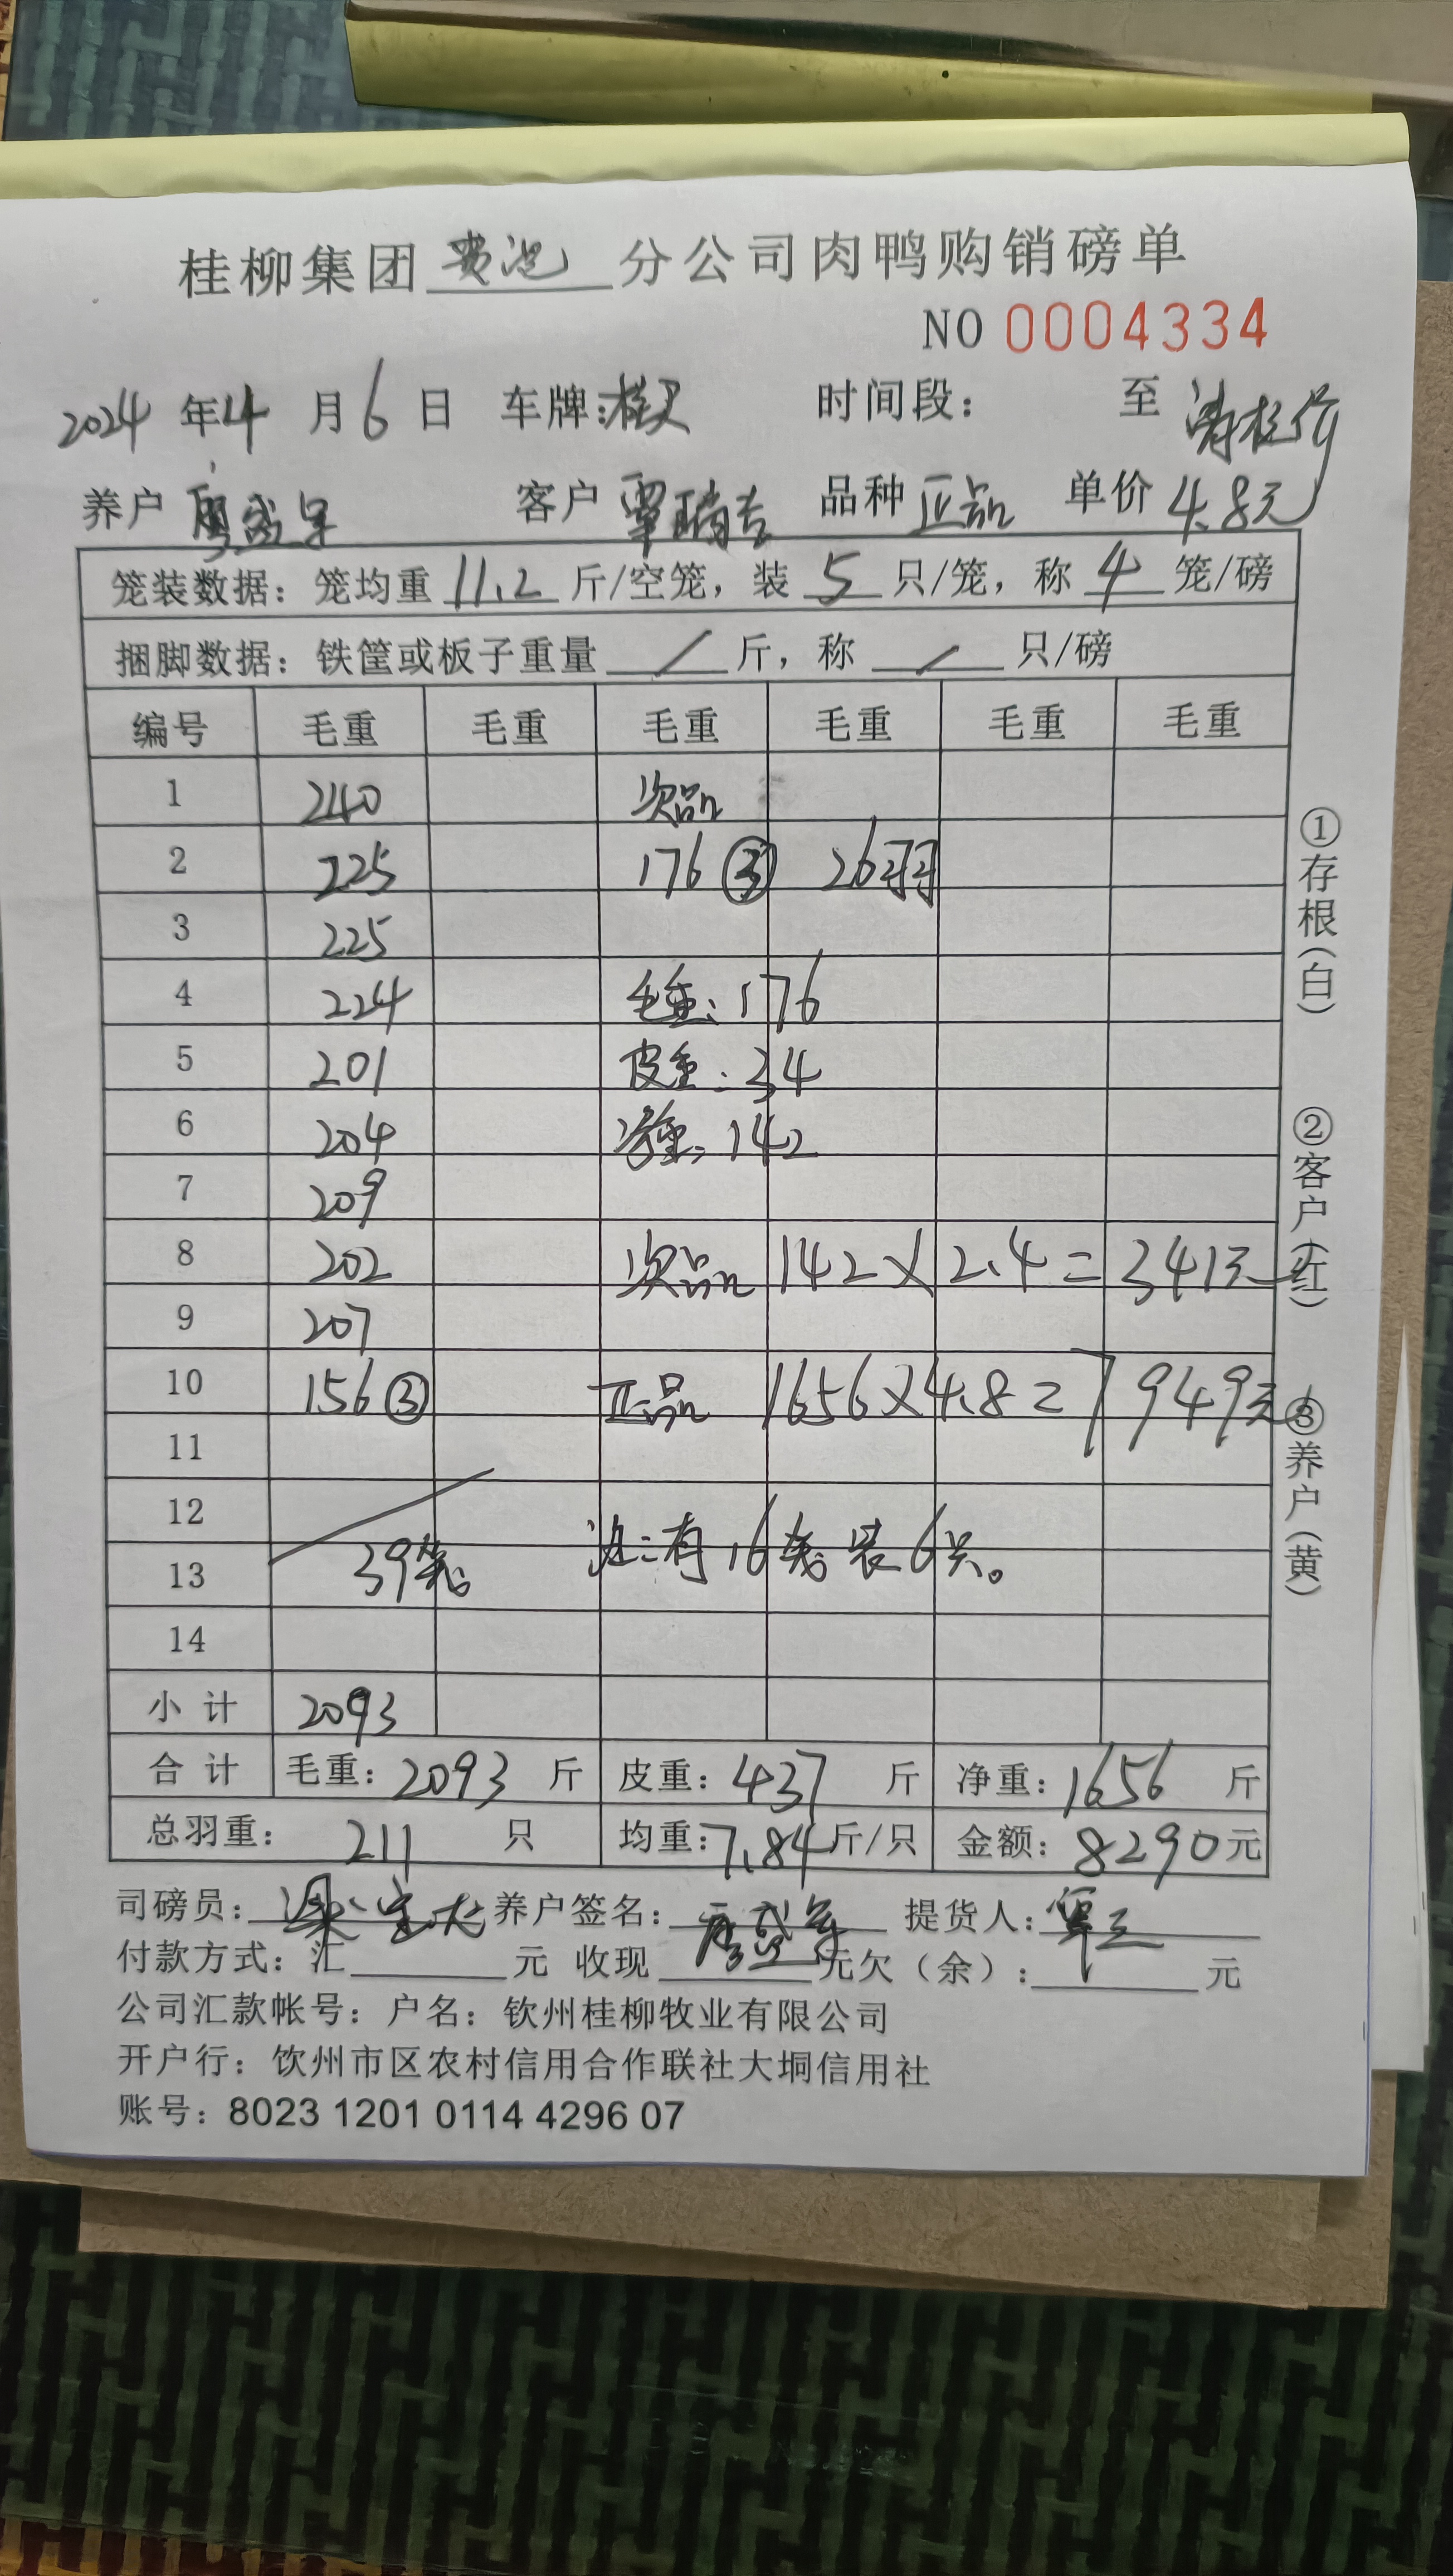 桂柳集团贵港分公司肉鸭购销磅单
NO 0004334
2024年4月6日 车牌: 时间段： 至 清栏价
养户 客户 覃瑞吉 品种 正品 单价 4.8元
笼装数据：笼均重 11.2 斤/空笼，装 5 只/笼，称 4 笼/磅
捆脚数据：铁筐或板子重量 / 斤，称 / 只/磅
编号 毛重 毛重 毛重 毛重 毛重 毛重
1 240 次品
2 225 176③ 26羽
3 225
4 224 毛重：176
5 201 皮重：34
6 204 净重：142
7 209
8 202 次品 142×2.4=341元
9 207
10 156③ 正品 1656×4.8=7949元
11
12
13 39笼 注：有16笼装6只。
14
小计 2093
合计 毛重：2093斤 皮重：437斤 净重：1656斤
总羽重：211只 均重：7.84斤/只 金额：8290元
司磅员： 养户签名： 提货人：覃
付款方式：汇 元 收现 元欠（余）： 元
公司汇款帐号：户名：钦州桂柳牧业有限公司
开户行：饮州市区农村信用合作联社大垌信用社
账号：8023 1201 0114 4296 07
①存根（白）
②客户（红）
③养户（黄）